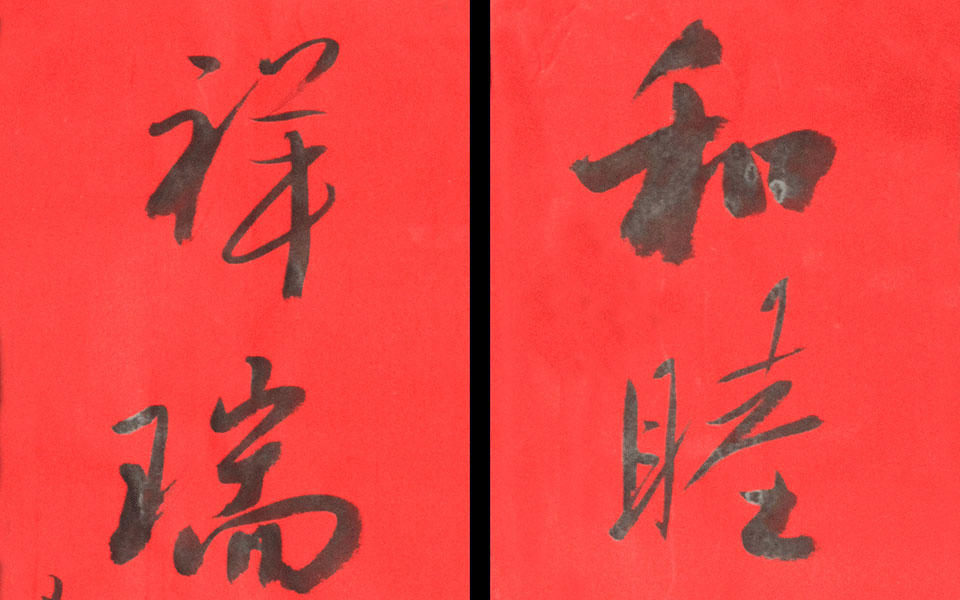 和睦
祥瑞